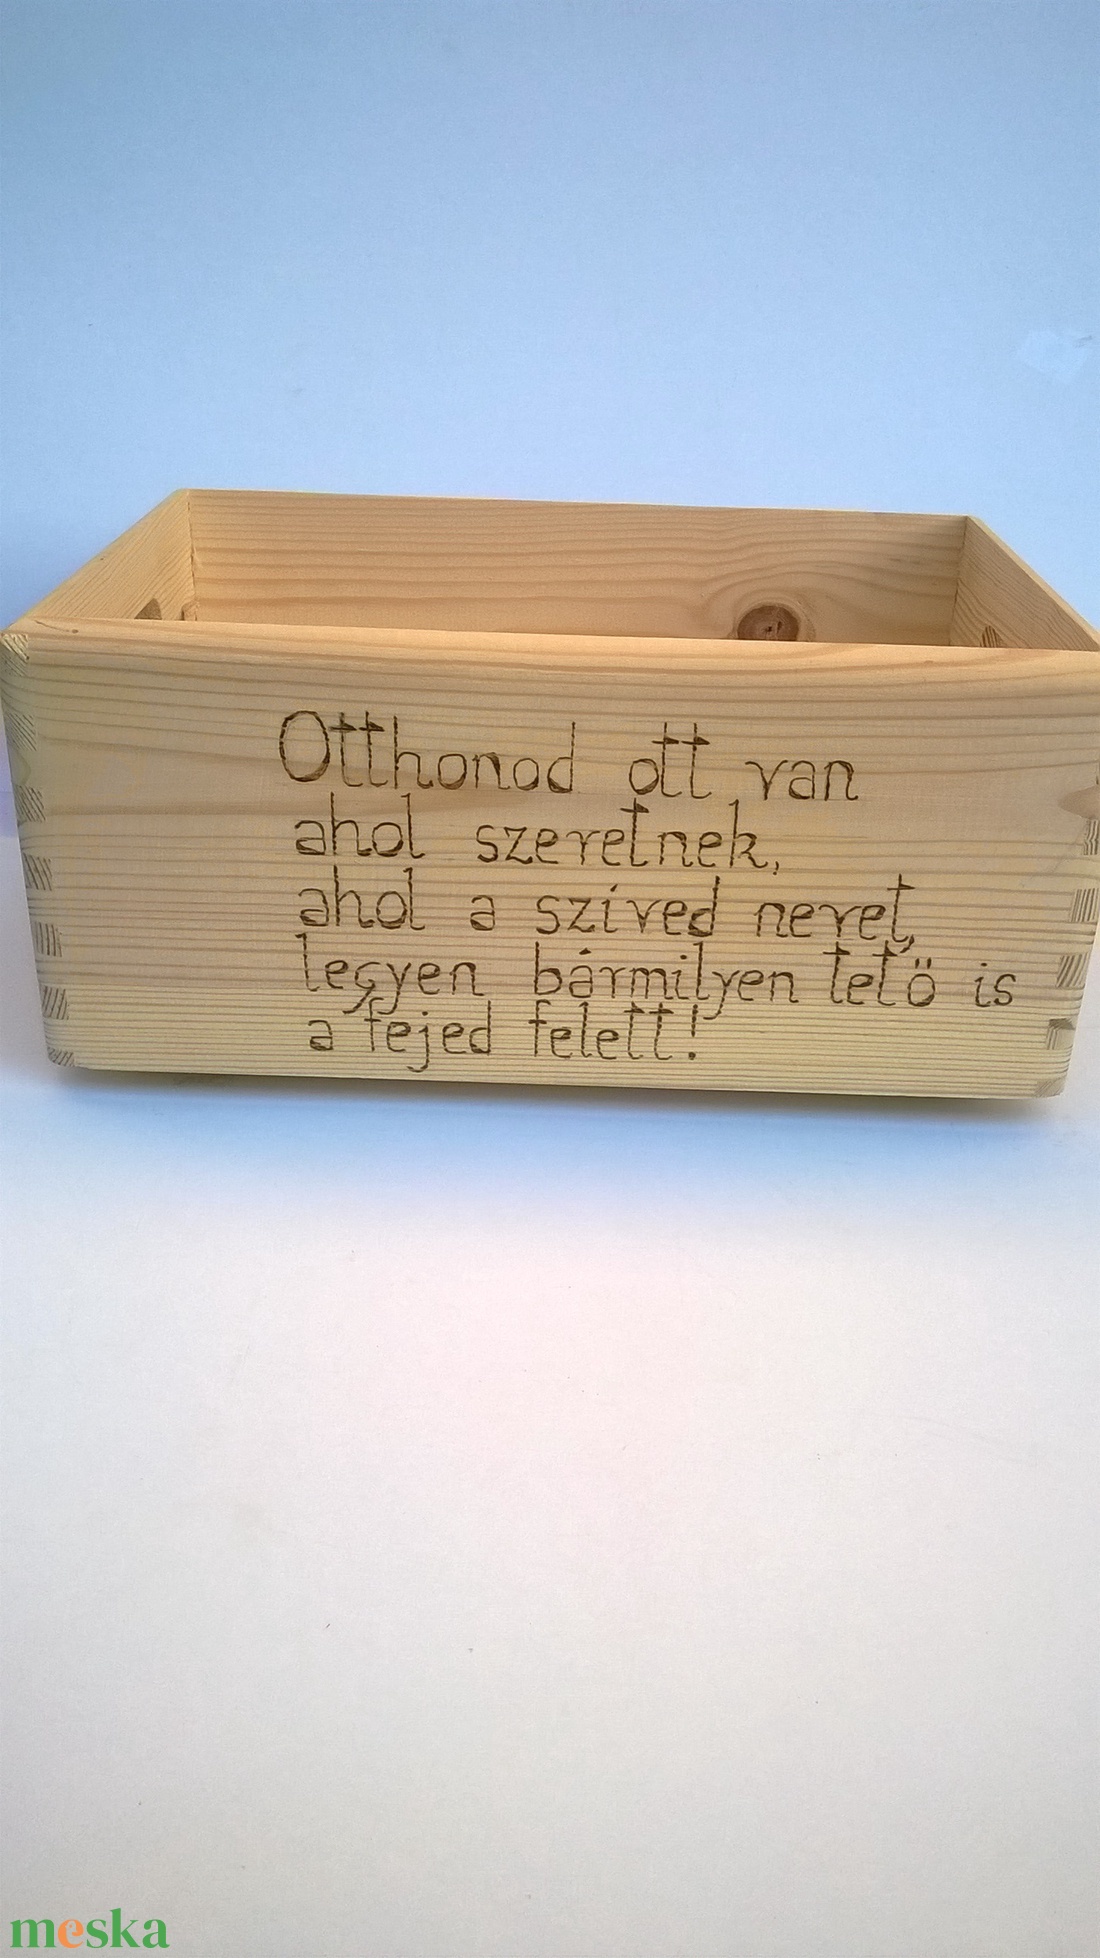 Otthonod ott van
ahol szeretnek,
ahol a szíved nevet,
legyen bármilyen tetö is
a fejed felett!
meska